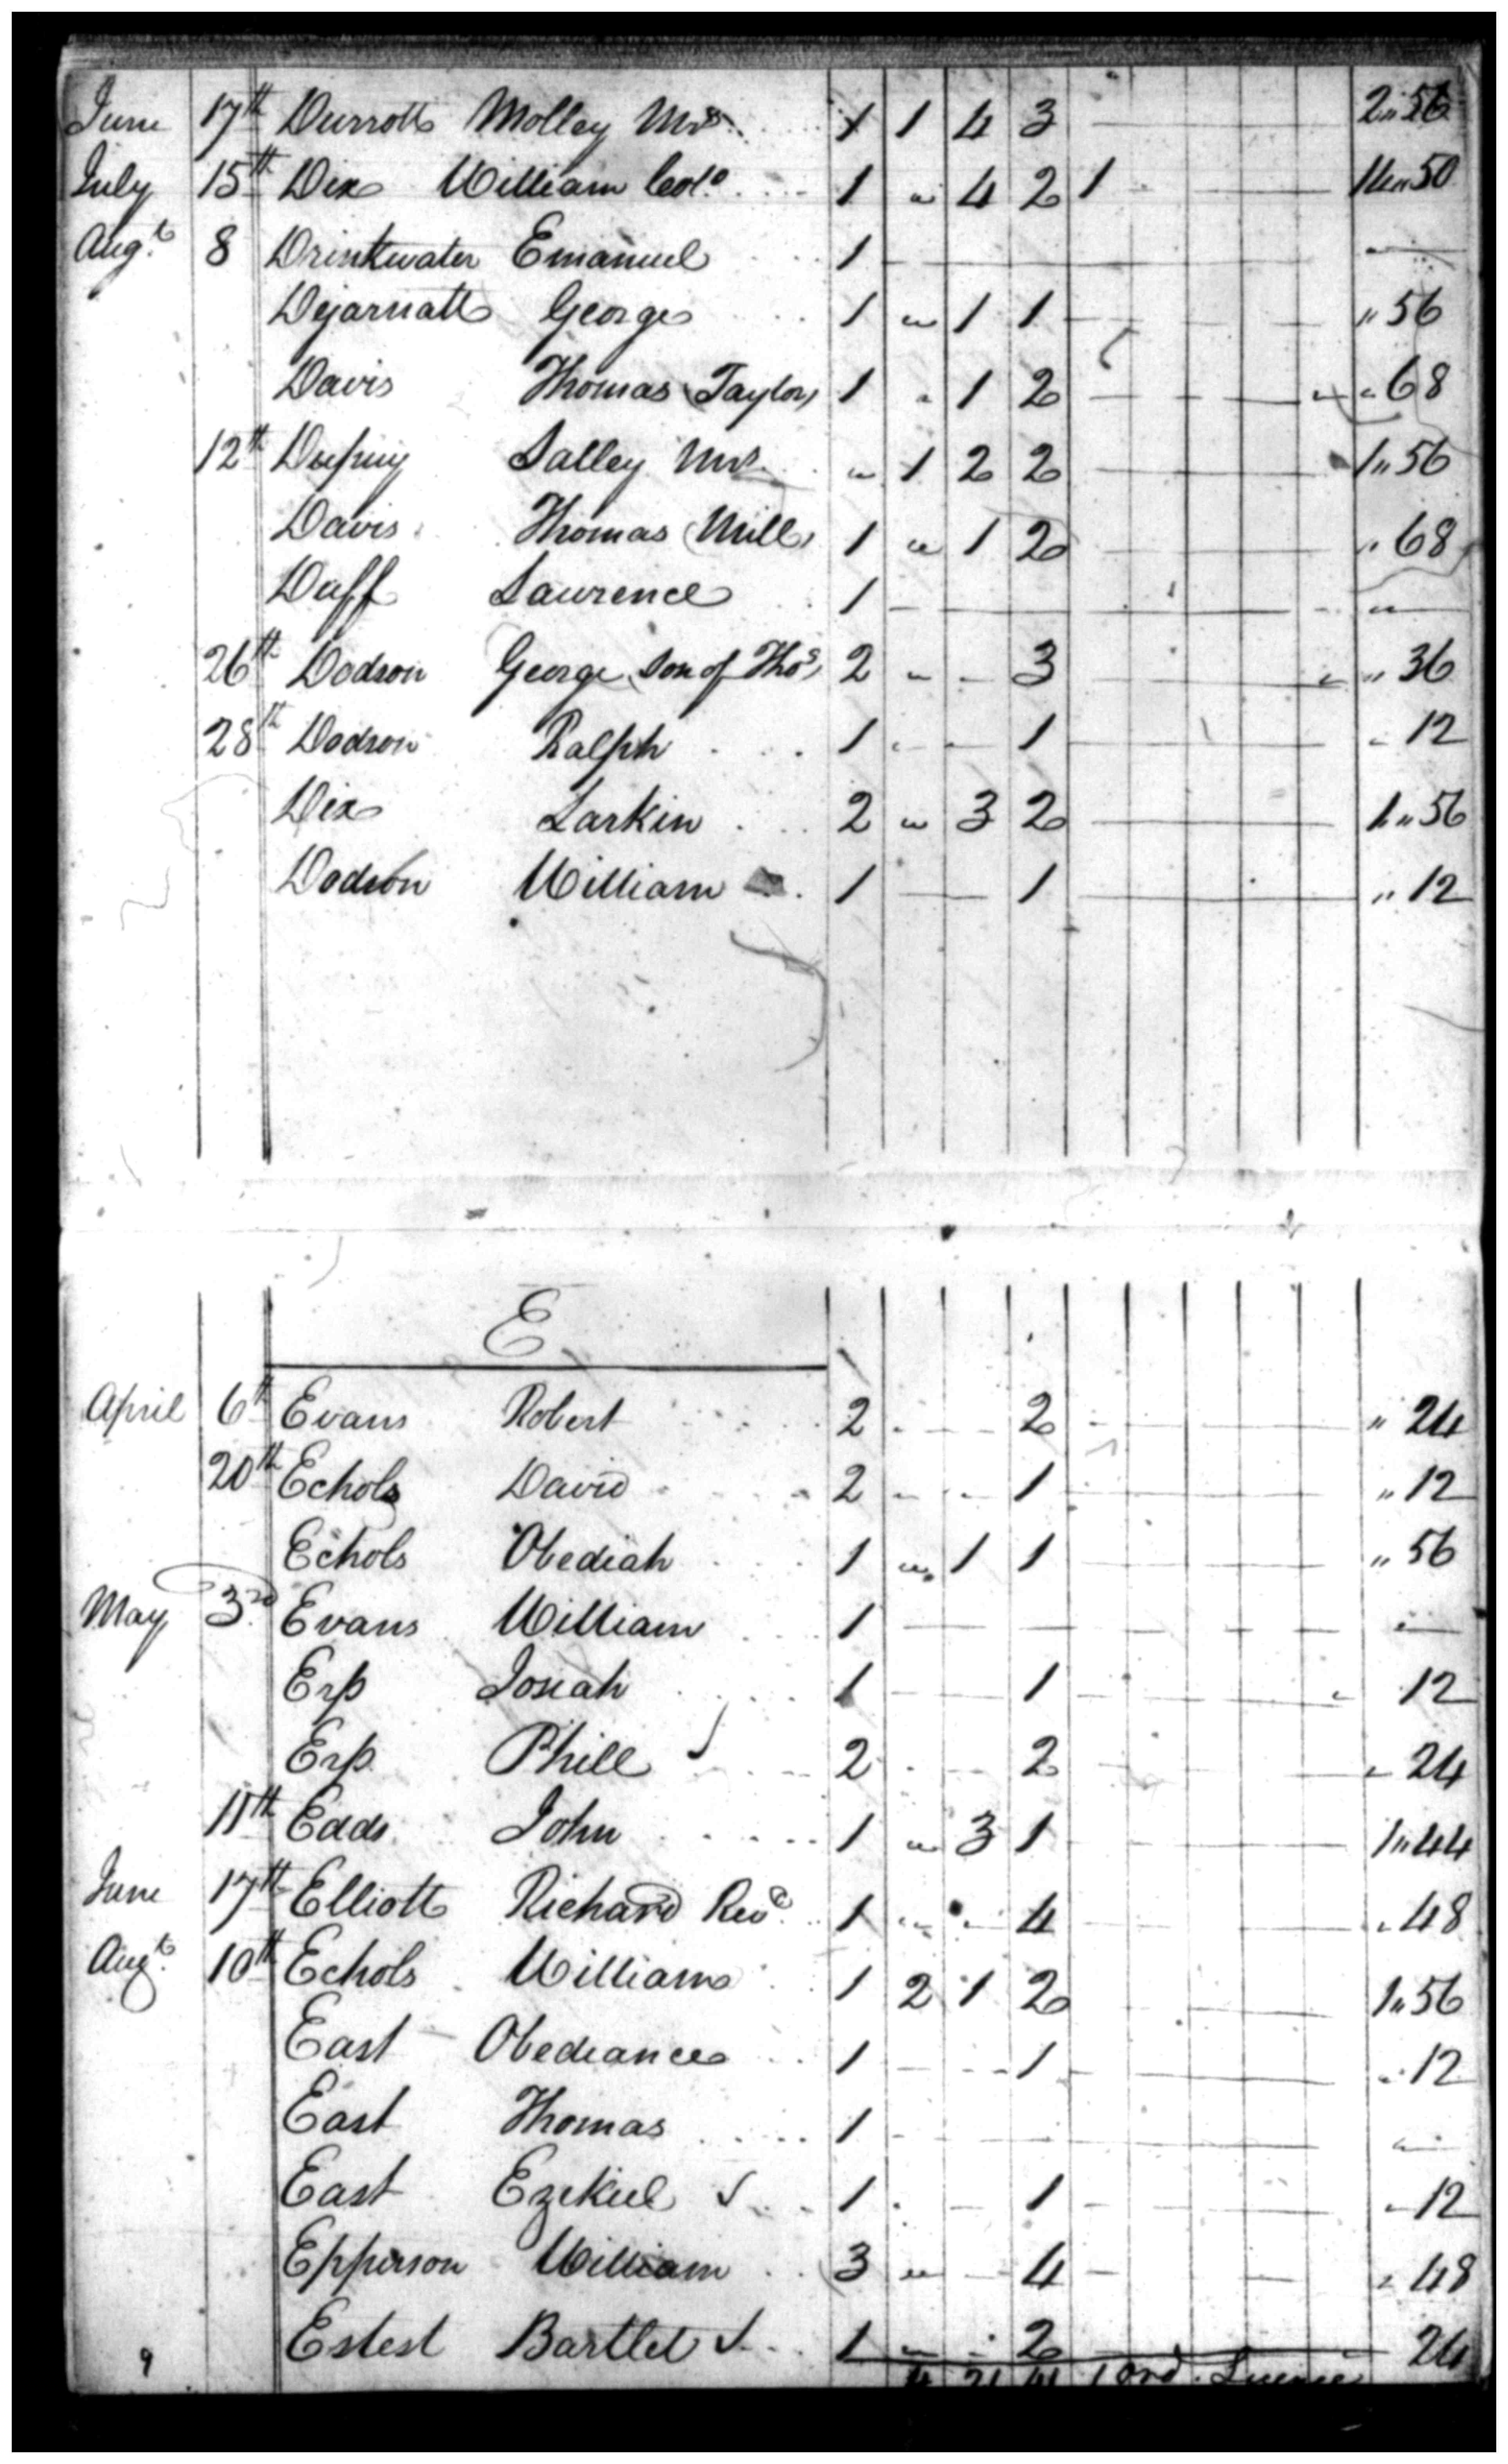 June 17th Durrott Molley Mrs. 1 1 4 3 2 " 56
July 15th Dix William Colo. 1 " 4 2 1 14 " 50
Augt. 8 Drinkwater Emanuel 1 "
Dejarnatt George 1 " 1 1 " 56
Davis Thomas (Taylor) 1 " 1 2 " 68
12th Dupuy Salley Mrs. " 1 2 2 1 " 56
Davis Thomas (Mill) 1 " 1 2 " 68
Duff Lawrence 1 "
26th Dodson George (son of Thos) 2 " 3 " 36
28th Dodson Ralph 1 1 " 12
Dix Larkin 2 " 3 2 1 " 56
Dodson William 1 1 " 12
E
April 6th Evans Robert 2 2 " 24
20th Echols David 2 1 " 12
Echols Obediah 1 " 1 1 " 56
May 3rd Evans William 1 "
Erp Josiah 1 1 12
Erp Phill 2 2 " 24
11th Edds John 1 " 3 1 1 " 44
June 17th Elliott Richard Revd. 1 " 4 " 48
Augt. 10th Echols William 1 2 1 2 1 " 56
East Obediance 1 1 " 12
East Thomas 1 "
East Ezekiel 1 1 " 12
Epperson William 3 " 4 " 48
Estest Bartlet 1 " 2 24
9 4 21 41 1 Ord.